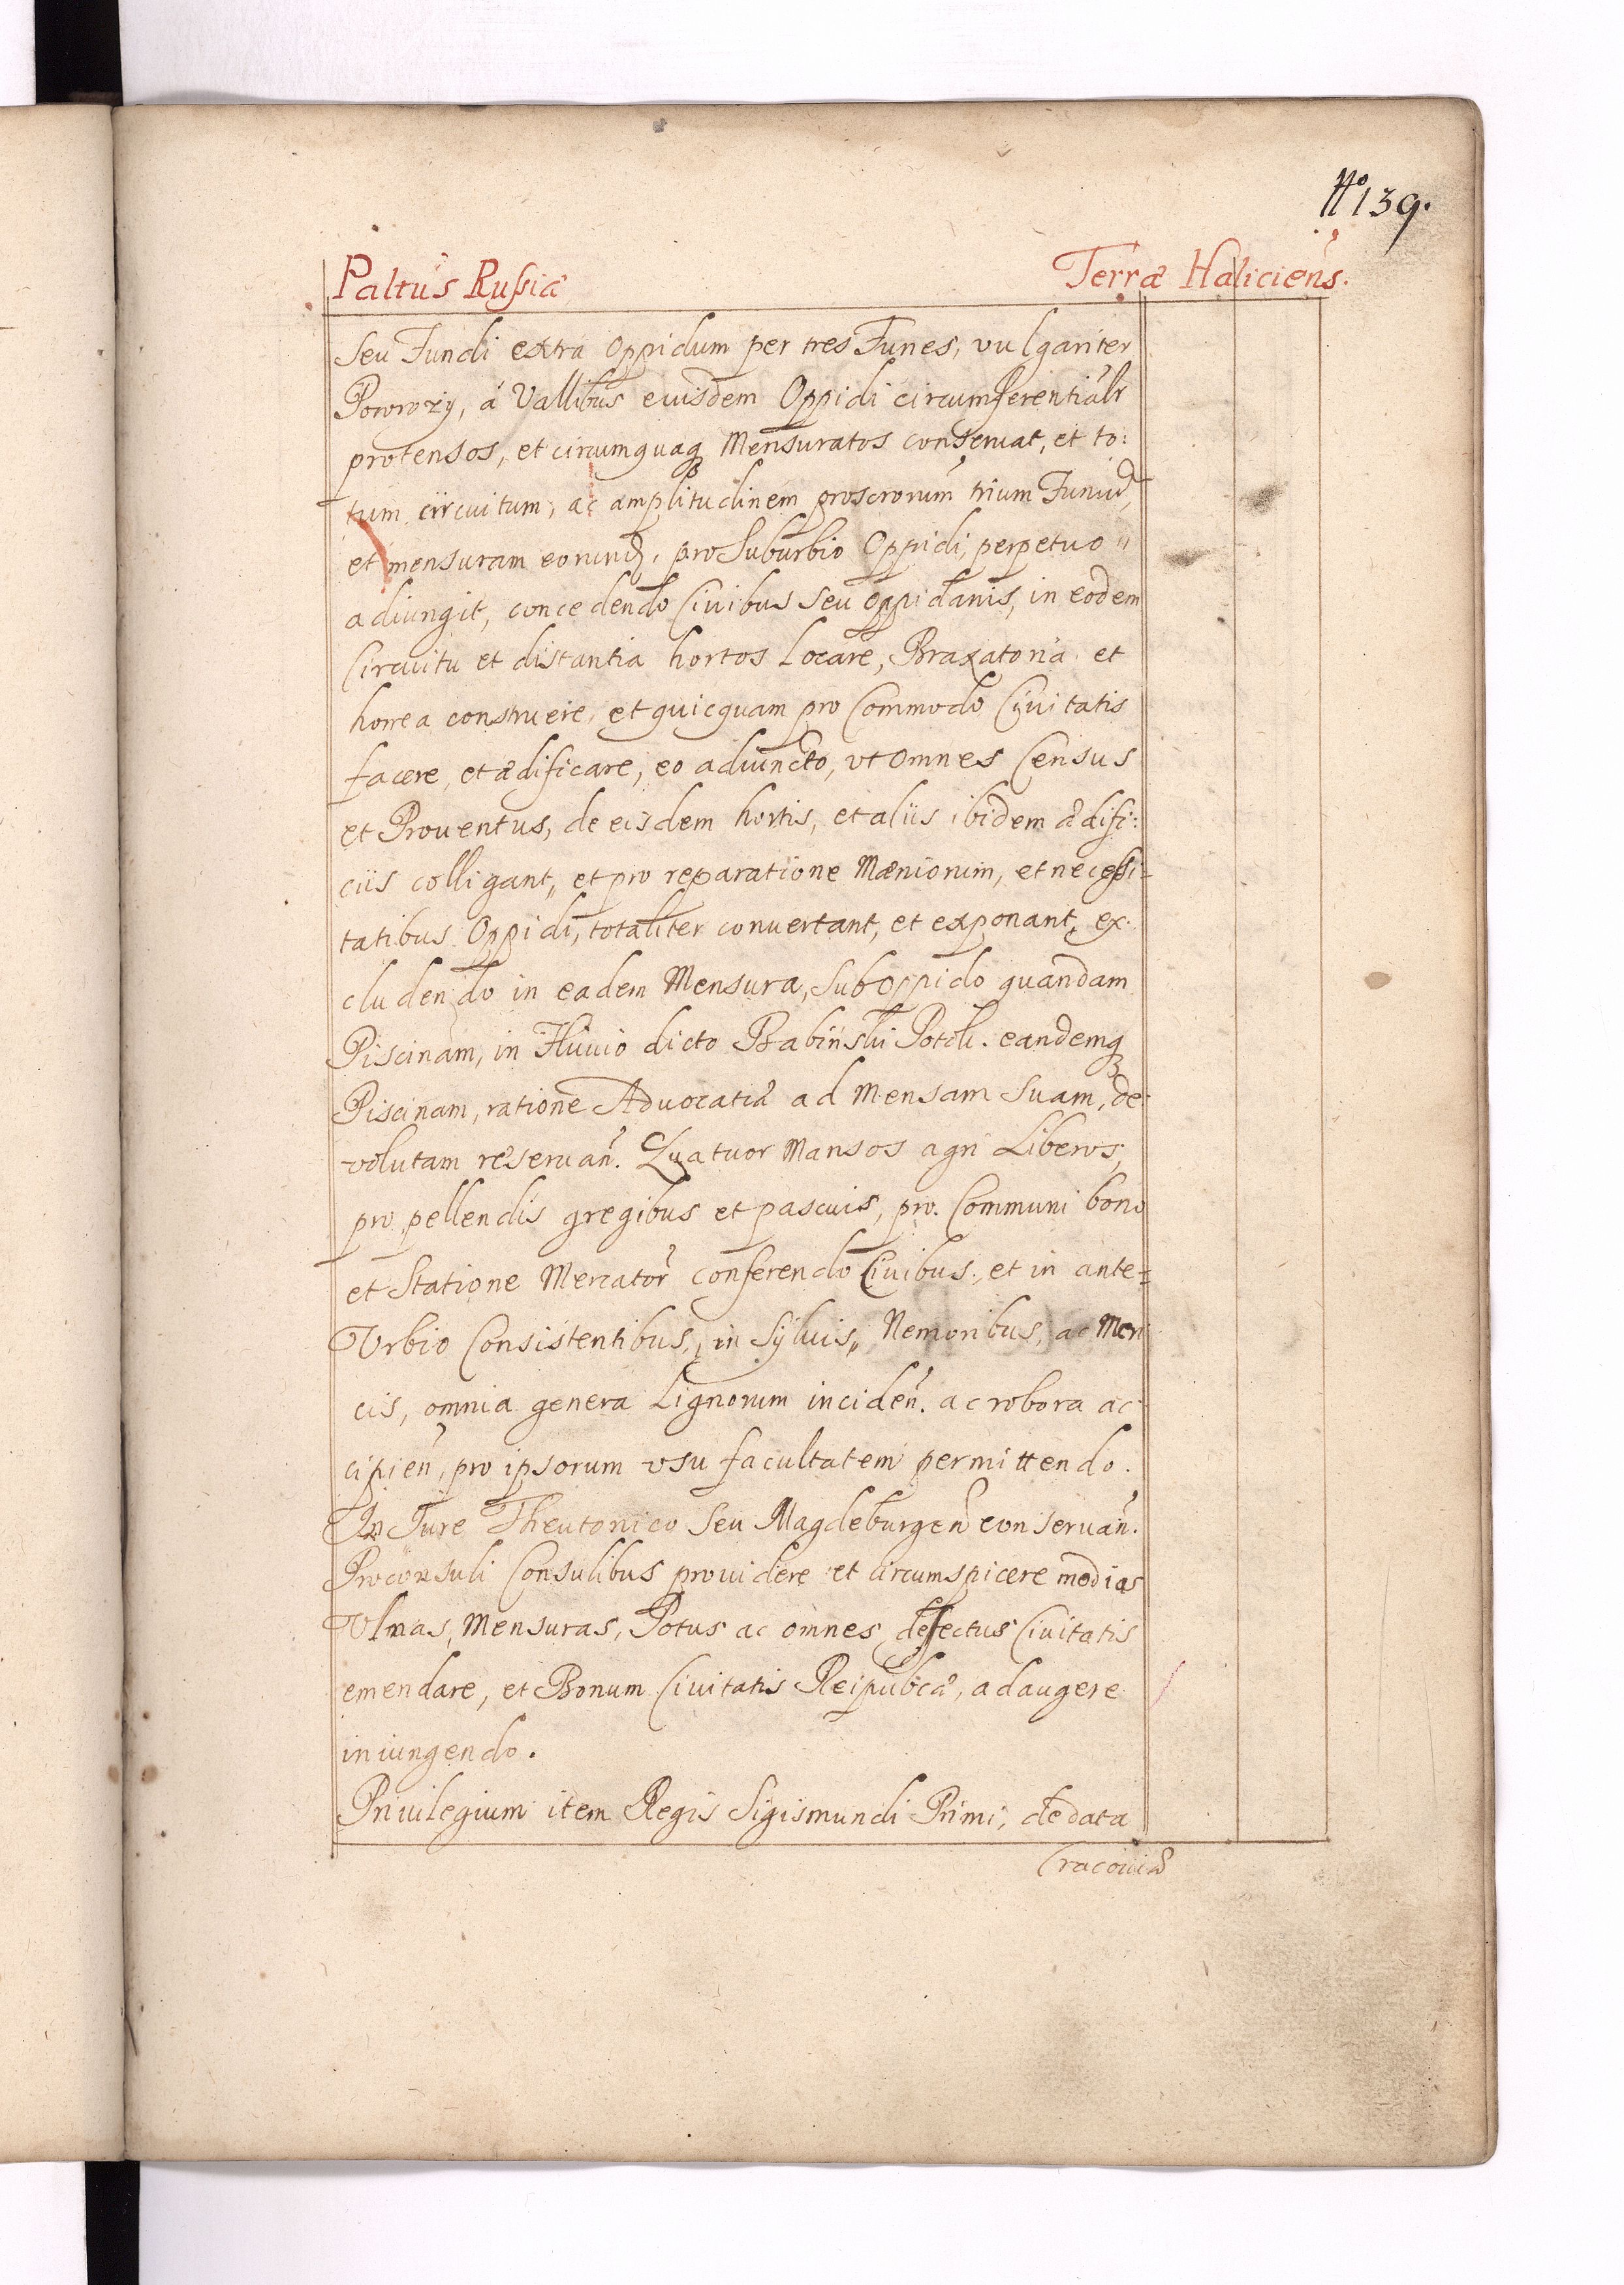 No 139.
Paltus Russiæ Terræ Haliciens.
Seu Fundi extra Oppidum per tres Funes, vulgariter
Powrozy, á Vallibus euisdem Oppidi circumferentialr
protensos, et circumquaq Mensuratos conseruat, et to:
tum circuitum, ac amplitudinem trium Funiu,
et mensuram eorund, pro Suburbio Oppidi, perpetuo
adiungit, concedendo Ciuibus Seu oppidanis, in eodem
Circuitu et distantia hortos Locare, Braxatoria et
horrea construere, et quicquam pro Commodo Ciuitatis
facere, et ædificare, eo adiuncto, vt omnes Census
et Prouentus, de eisdem hortis, et aliis ibidem ædifi:
ciis colligant, et pro reparatione Mæniorum, et necessi-
tatibus Oppidi, totaliter conuertant, et exponant, ex-
cludendo in eadem Mensura, Sub Oppido quandam
Piscinam, in Fluuio dicto Babinski Potok. eandemq
Piscinam, ratione Aduocatiæ ad Mensam Suam, de-
volutam reseruan. Quatuor Mansos agri Liberos,
pro pellendis gregibus et pascuis, pro Communi bono
et Statione Mercator conferendo Ciuibus, et in ante=
Vrbio Consistentibus, in Syluis, Nemoribus, ac Meri
cis, omnia genera Lignorum inciden. ac robora ac
cipien, pro ipsorum vsu facultatem permittendo.
In Iure Theutonico Seu Magdeburgen conseruan.
Proconsuli Consulibus prouidere et circumspicere modios
Vlnas, Mensuras, Potus ac omnes defectus Ciuitatis
emendare, et Bonum Ciuitatis Reipublcæ, adaugere
iniungendo.
Priuilegium item Regis Sigismundi Primi, de data
Cracouiæ